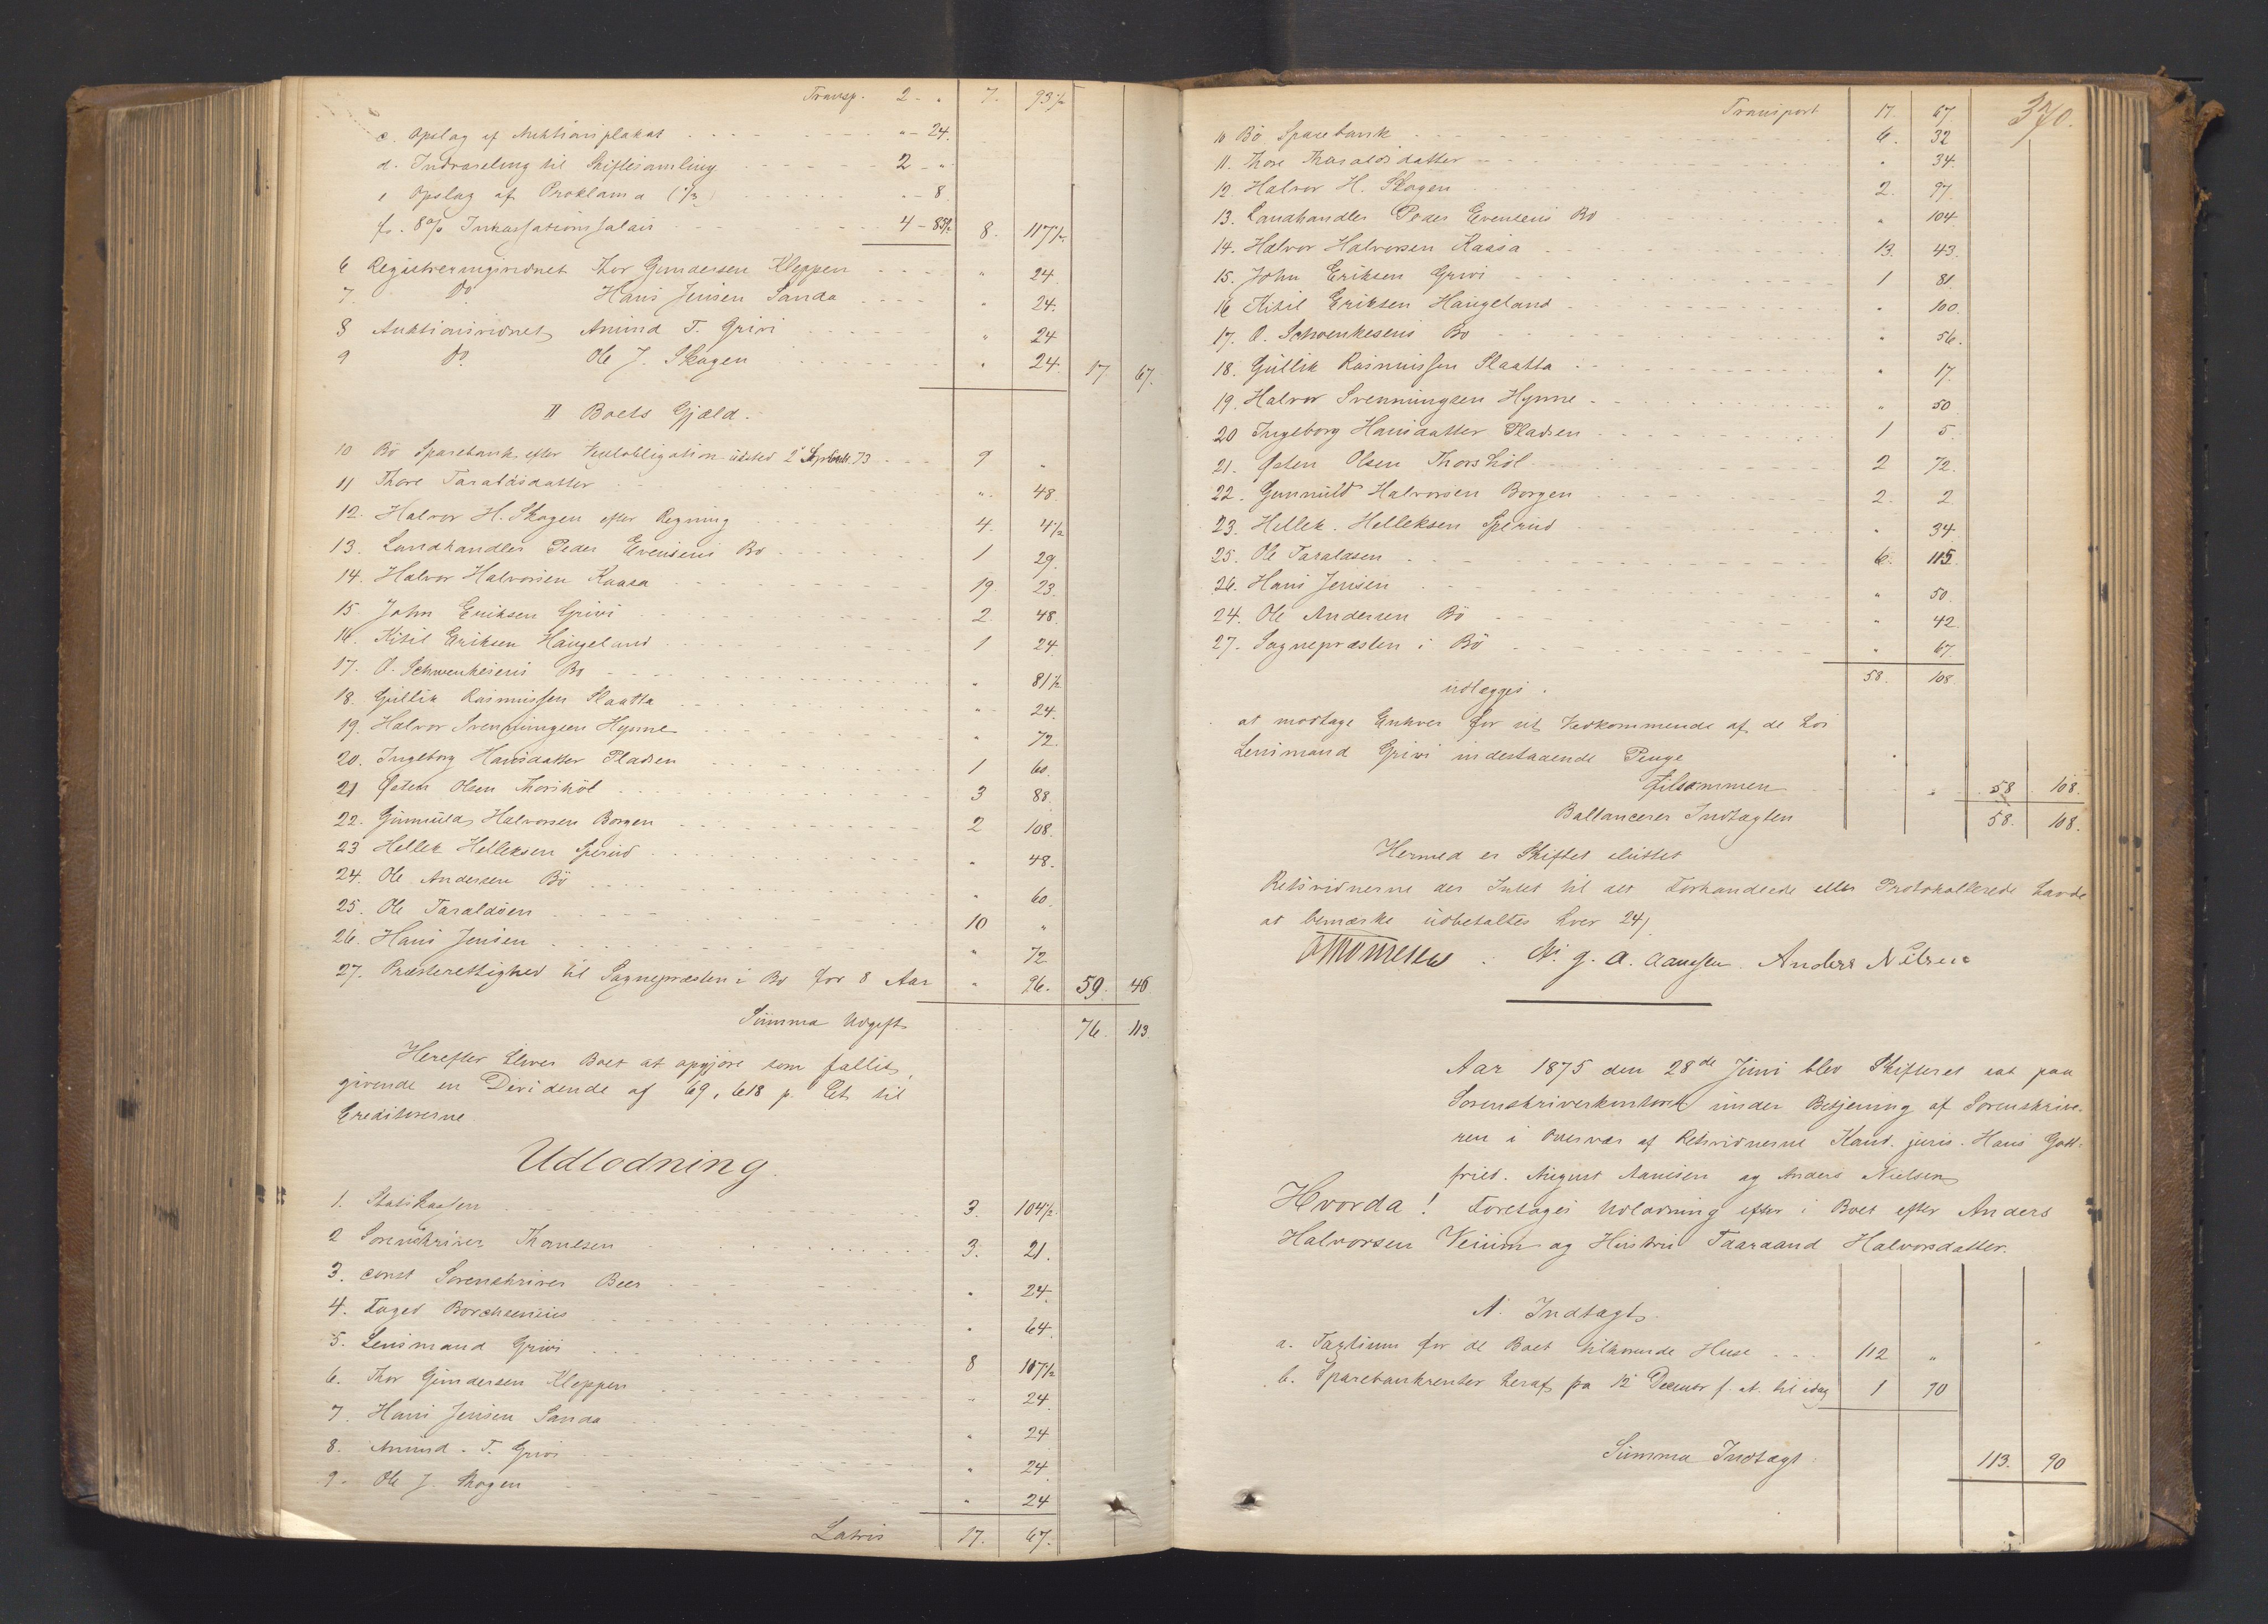 Transp. 2 - " 7. 93½
c. Opslag af Auktionsplakat " - 24.
d. Indvarsling til Skiftesamling 2 - "
e Opslag af Proklama (1/3) " - 8
f. 8 % Inkassationssalair 4 - 85½ 8. 117½
6 Registreringsvidnet Thor Gundersen Kleppen " 24
7. Do Hans Jensen Sanda " 24.
8 Auktionsvidnet Amund T. Grivi " 24
9 Do. Ole J. Skogen " 24. 17 67.
II Boets Gjæld.
10 Bö Sparebank efter Vexelobligation udsted 2 Septembr. 73 9 "
11 Thore Taraldsdatter " 48.
12. Halvor H. Skogen efter Regning 4. 4½
13. Landhandler Peder Evensens Bo 1 29.
14. Halvor Halvorsen Kaasa 19. 23
15. John Eriksen Grivi 2. 48.
16. Kitil Eriksen Haugeland 1 24
17. O. Schwenkesens Bo " 81½
18. Gullik Rasmussen Slaatta " 24.
19. Halvor Svenningsen Hynne " 72.
20. Ingeborg Hansdatter Pladsen 1 60.
21 Østen Olsen Thorshöl 3 88.
22. Gunnuld Halvorsen Borgen 2 108.
23 Hellek Helleksen Sperud " 48.
24. Ole Andersen Bö " 60.
25. Ole Taraldsen 10 "
26. Hans Jensen " 72
27. Præsterettighed til Sognepræsten i Bö for 8 Aar " 96. 59. 46
Summa Udgift 76. 113.
Herefter bliver Boet at opgjöre som fallit,
givende en Dividende af 69,618 p. Ct. til
Creditorerne.
Udlodning.
1. Statskassen 3. 104½
2 Sorenskriver Thomesen 3. 21.
3. const Sorenskriver Beer " 24.
4. Foged Borchsenius " 64.
5. Lensmand Grivi 8 107½
6. Thor Gundersen Kleppen " 24.
7. Hans Jensen Sanda " 24
8. Amund. T. Grivi " 24.
9. Ole J. Skogen " 24
Latris 17. 67.
370.
Transport 17. 67.
10 Bö Sparebank 6. 32
11. Thore Tharaldsdatter " 34.
12. Halvor H. Skogen 2. 97.
13. Landhandler Peder Evensens Bo " 104.
14. Halvor Halvorsen Kaasa 13. 43.
15. John Eriksen Grivi 1 81.
16 Kitil Eriksen Haugeland " 100.
17. O. Schwenkesens Bo " 56.
18. Gullik Rasmussen Slaatta " 17.
19. Halvor Svenningsen Hynne " 50
20 Ingeborg Hansdatter Pladsen 1 5.
21. Østen Olsen Thorshöl 2 72.
22. Gunnuld Halvorsen Borgen 2. 2.
23. Hellek. Helleksen Sperud " 34.
25. Ole Taraldsen 6. 115.
26. Hans Jensen " 50.
24. Ole Andersen Bö " 42.
27. Sognepræsten i Bö " 67.
58. 108.
udlægges.
at modtage Enhver for sit Vedkommende af de hos
Lensmand Grivi indestaaende Penge
tilsammen " 58 108.
Ballancerer Indtægten 58. 108.
Hermed er Skiftet sluttet
Retsvidnerne der Intet til det Forhandlede eller Protokollerede havde
at bemærke udbetaltes hver 24 ß
Thomesen. H. G. A. Aanesen. Anders Nilsen
Aar 1875 den 28de Juni blev Skifteret sat paa
Sorenskriverkontoret under Betjening af Sorenskrive-
ren i Overvær af Retsvidnerne Kand. juris. Hans Gott-
fried. August Aanesen og Anders Nielsen
Hvorda! Foretoges Udlodning efter i Boet efter Anders
Halvorsen Veium og Hustru Taaraand Halvorsdatter.
A. Indtægt.
a. Taxtsum for de Boet tilhörende Huse 112 "
b. Sparebankrenter heraf fra 12 Decembr f. A. til idag 1 90
Summa Indtægt 113. 90